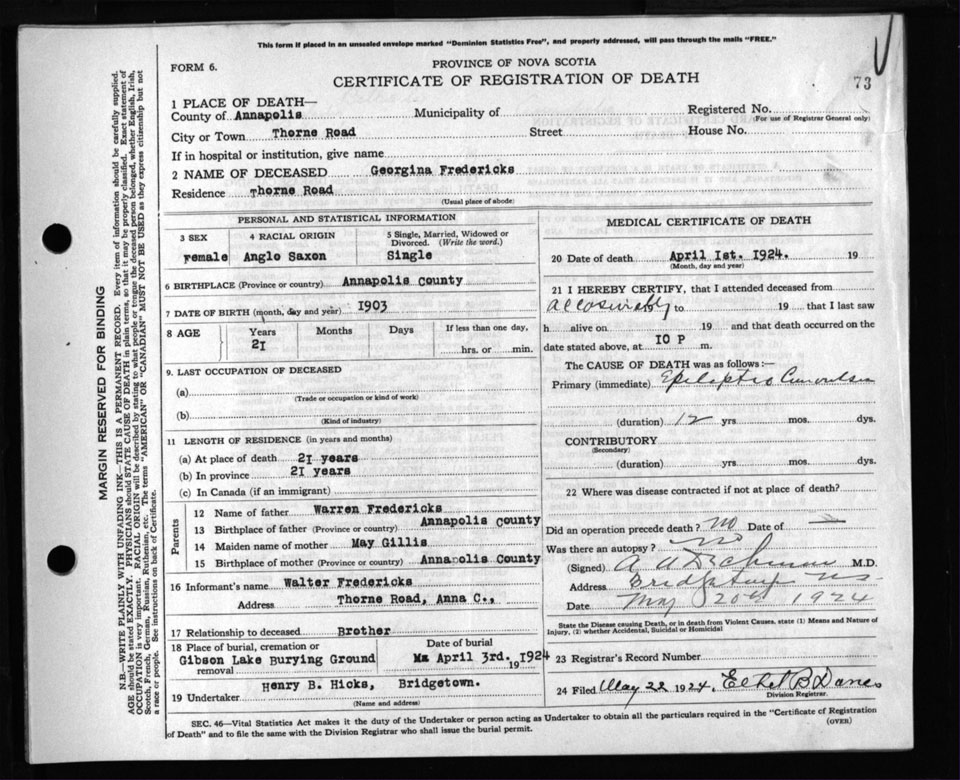 This form if placed in an unsealed envelope marked "Dominion Statistics Free", and properly addressed, will pass through the mails "FREE."
FORM 6.
PROVINCE OF NOVA SCOTIA
CERTIFICATE OF REGISTRATION OF DEATH
73
1 PLACE OF DEATH—
County of Annapolis Municipality of Registered No.
(For use of Registrar General only)
City or Town Thorne Road Street House No.
If in hospital or institution, give name
2 NAME OF DECEASED Georgina Fredericks
Residence Thorne Road
(Usual place of abode)
PERSONAL AND STATISTICAL INFORMATION
3 SEX 4 RACIAL ORIGIN 5 Single, Married, Widowed or Divorced. (Write the word.)
Female Anglo Saxon Single
6 BIRTHPLACE (Province or country) Annapolis County
7 DATE OF BIRTH (month, day and year) 1903
8 AGE Years Months Days If less than one day,
21 hrs. or min.
9. LAST OCCUPATION OF DECEASED
(a)
(Trade or occupation or kind of work)
(b)
(Kind of industry)
11 LENGTH OF RESIDENCE (in years and months)
(a) At place of death 21 years
(b) In province 21 years
(c) In Canada (if an immigrant)
Parents
12 Name of father Warren Fredericks
13 Birthplace of father (Province or country) Annapolis County
14 Maiden name of mother May Gillis
15 Birthplace of mother (Province or country) Annapolis County
16 Informant's name Walter Fredericks
Address Thorne Road, Anna C.,
17 Relationship to deceased Brother
18 Place of burial, cremation or removal Gibson Lake Burying Ground
Date of burial
April 3rd. 1924
19
19 Undertaker Henry B. Hicks, Bridgetown.
(Name and address)
MEDICAL CERTIFICATE OF DEATH
20 Date of death April 1st. 1924. 19
(Month, day and year)
21 I HEREBY CERTIFY, that I attended deceased from
to 19 that I last saw
h alive on 19 and that death occurred on the
date stated above, at 10 P m.
The CAUSE OF DEATH was as follows:—
Primary (immediate) Epileptic
(duration) 12 yrs. mos. dys.
CONTRIBUTORY
(Secondary)
(duration) yrs. mos. dys.
22 Where was disease contracted if not at place of death?
Did an operation precede death? no Date of —
Was there an autopsy? no
(Signed) M.D.
Address Bridgetown NS
Date May 20th 1924
State the Disease causing Death, or in death from Violent Causes, state (1) Means and Nature of
Injury, (2) whether Accidental, Suicidal or Homicidal
23 Registrar's Record Number
24 Filed May 22 1924. Ethel B
Division Registrar.
SEC. 46—Vital Statistics Act makes it the duty of the Undertaker or person acting as Undertaker to obtain all the particulars required in the "Certificate of Registration
of Death" and to file the same with the Division Registrar who shall issue the burial permit.
(OVER)
MARGIN RESERVED FOR BINDING
N.B.—WRITE PLAINLY WITH UNFADING INK—THIS IS A PERMANENT RECORD. Every item of information should be carefully supplied.
AGE should be stated EXACTLY. PHYSICIANS should STATE CAUSE OF DEATH in plain terms, so that it may be properly classified. Exact statement of
OCCUPATION is very important. RACIAL ORIGIN will be described by stating to what people or tongue the deceased person belonged, whether English, Irish,
Scotch, French, German, Russian, Ruthenian, etc. The terms "AMERICAN" OR "CANADIAN" MUST NOT BE USED as they express citizenship but not
a race or people. See instructions on back of Certificate.